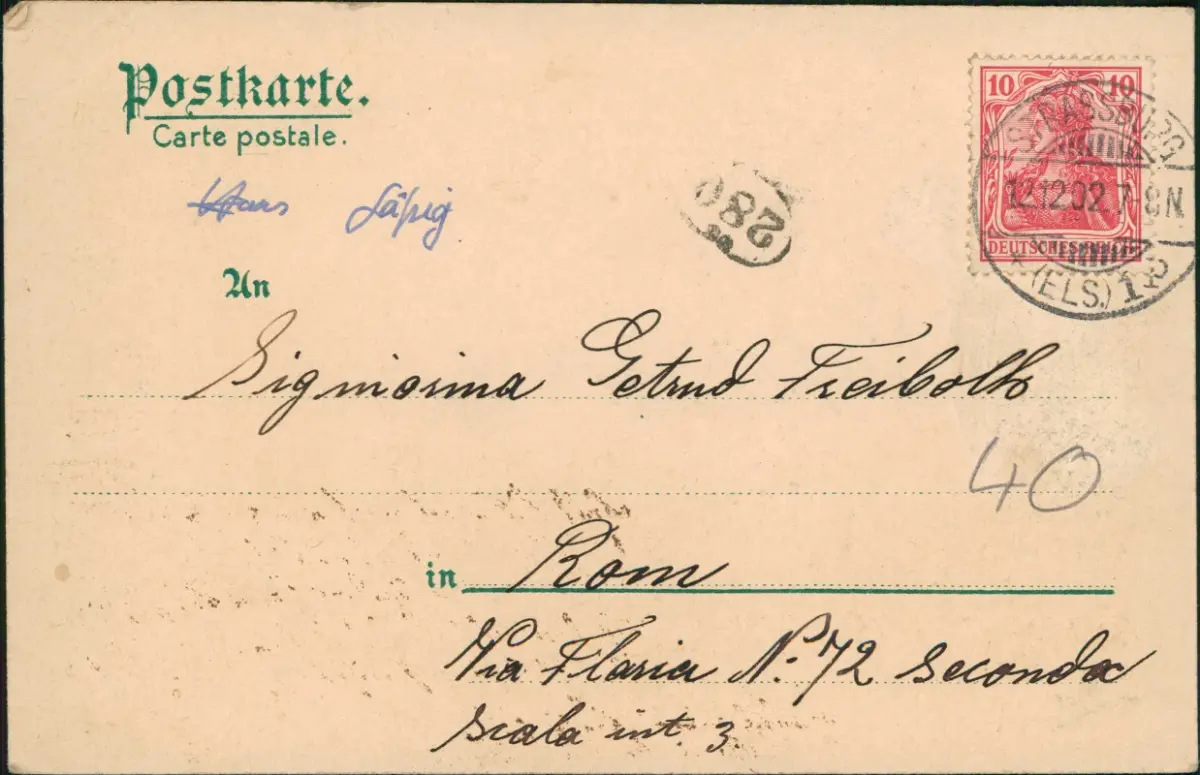 Postkarte.
Carte postale.
10 10
DEUTSCHES REICH
STRASSBURG
12.12.02.7-8N
* (ELS.) 1
280
An
Signiorina Getrud Freiboth
40
in Rom
Via Flaria N.º 72 seconda
scala int. 3.